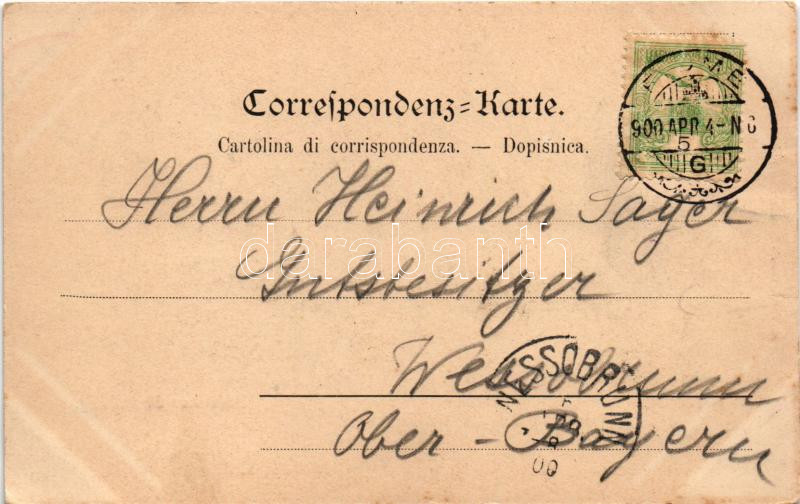 Correspondenz-Karte.
Cartolina di corrispondenza. — Dopisnica.
FIUME
900 APR 4-N 6
5
G
Herrn Heinrich Sager
Gutsbesitzer
Wessobrunn
Ober-Bayern
WESSOBRUNN
darabanth